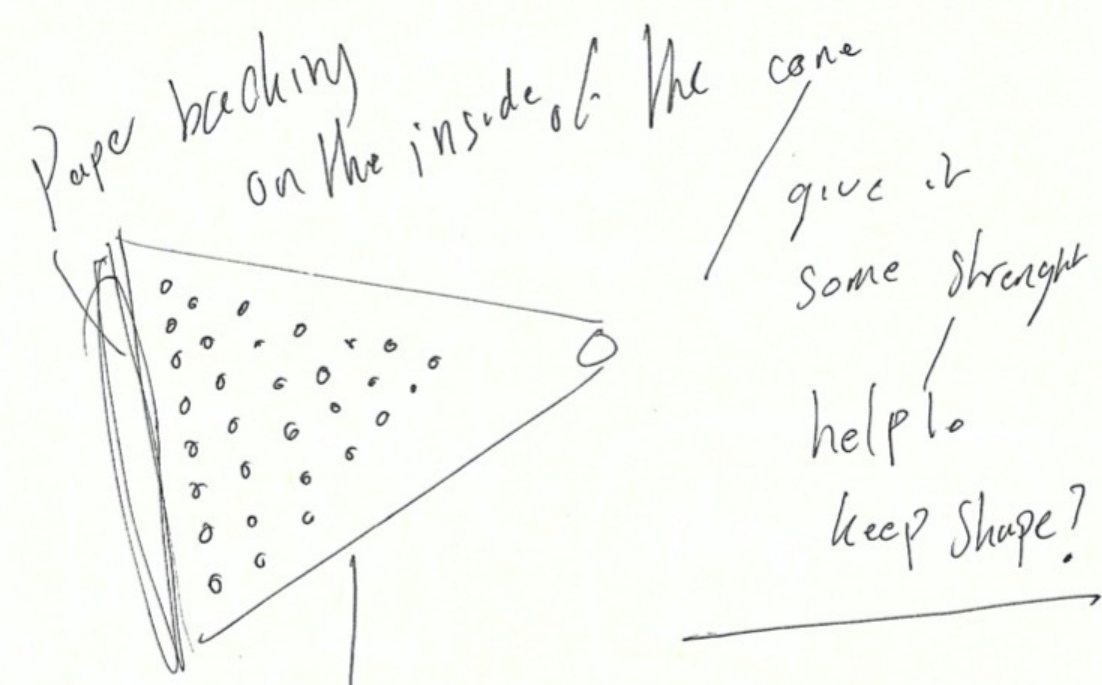 Pape backing
on the inside of the cone
give it
some strenght
help to
keep shape?